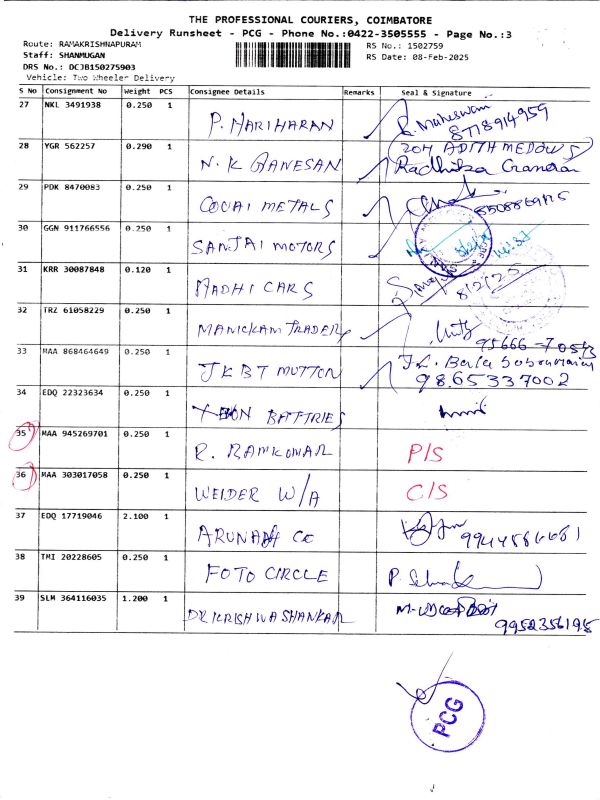 THE PROFESSIONAL COURIERS, COIMBATORE
Delivery Runsheet - PCG - Phone No.:0422-3505555 - Page No.:3
Route: RAMAKRISHNAPURAM
RS No.: 1502759
Staff: SHANMUGAN
RS Date: 08-Feb-2025
DRS No.: DCJB150275903
Vehicle: Two Wheeler Delivery
S No Consignment No Weight PCS Consignee Details Remarks Seal & Signature
27 NKL 3491938 0.250 1
P. HARIHARAN R. Maheswari
8778914959
28 YGR 562257 0.290 1 204 ADITH MEDOWS
N. K GANESAN Radhika
29 PDK 8470083 0.250 1
COVAI METALS
30 GGN 911766556 0.250 1
SANJAI MOTORS
31 KRR 30087848 0.120 1
AADHI CARS 8/2/25
32 TRZ 61058229 0.250 1
MANICKAM TRADERS
95666-70543
33 MAA 868464649 0.250 1
JKBT MUTTON 9865337002
34 EDQ 22323634 0.250 1
BATTRIES
35 MAA 945269701 0.250 1
R. RAMKUMAR P/S
36 MAA 303017058 0.250 1
WEIDER W/A C/S
37 EDQ 17719046 2.100 1
ARUNADH CE
38 TMI 20228605 0.250 1
FOTO CIRCLE
39 SLM 364116035 1.200 1
DR KRISHWASHANKAR
9952356195
PCG